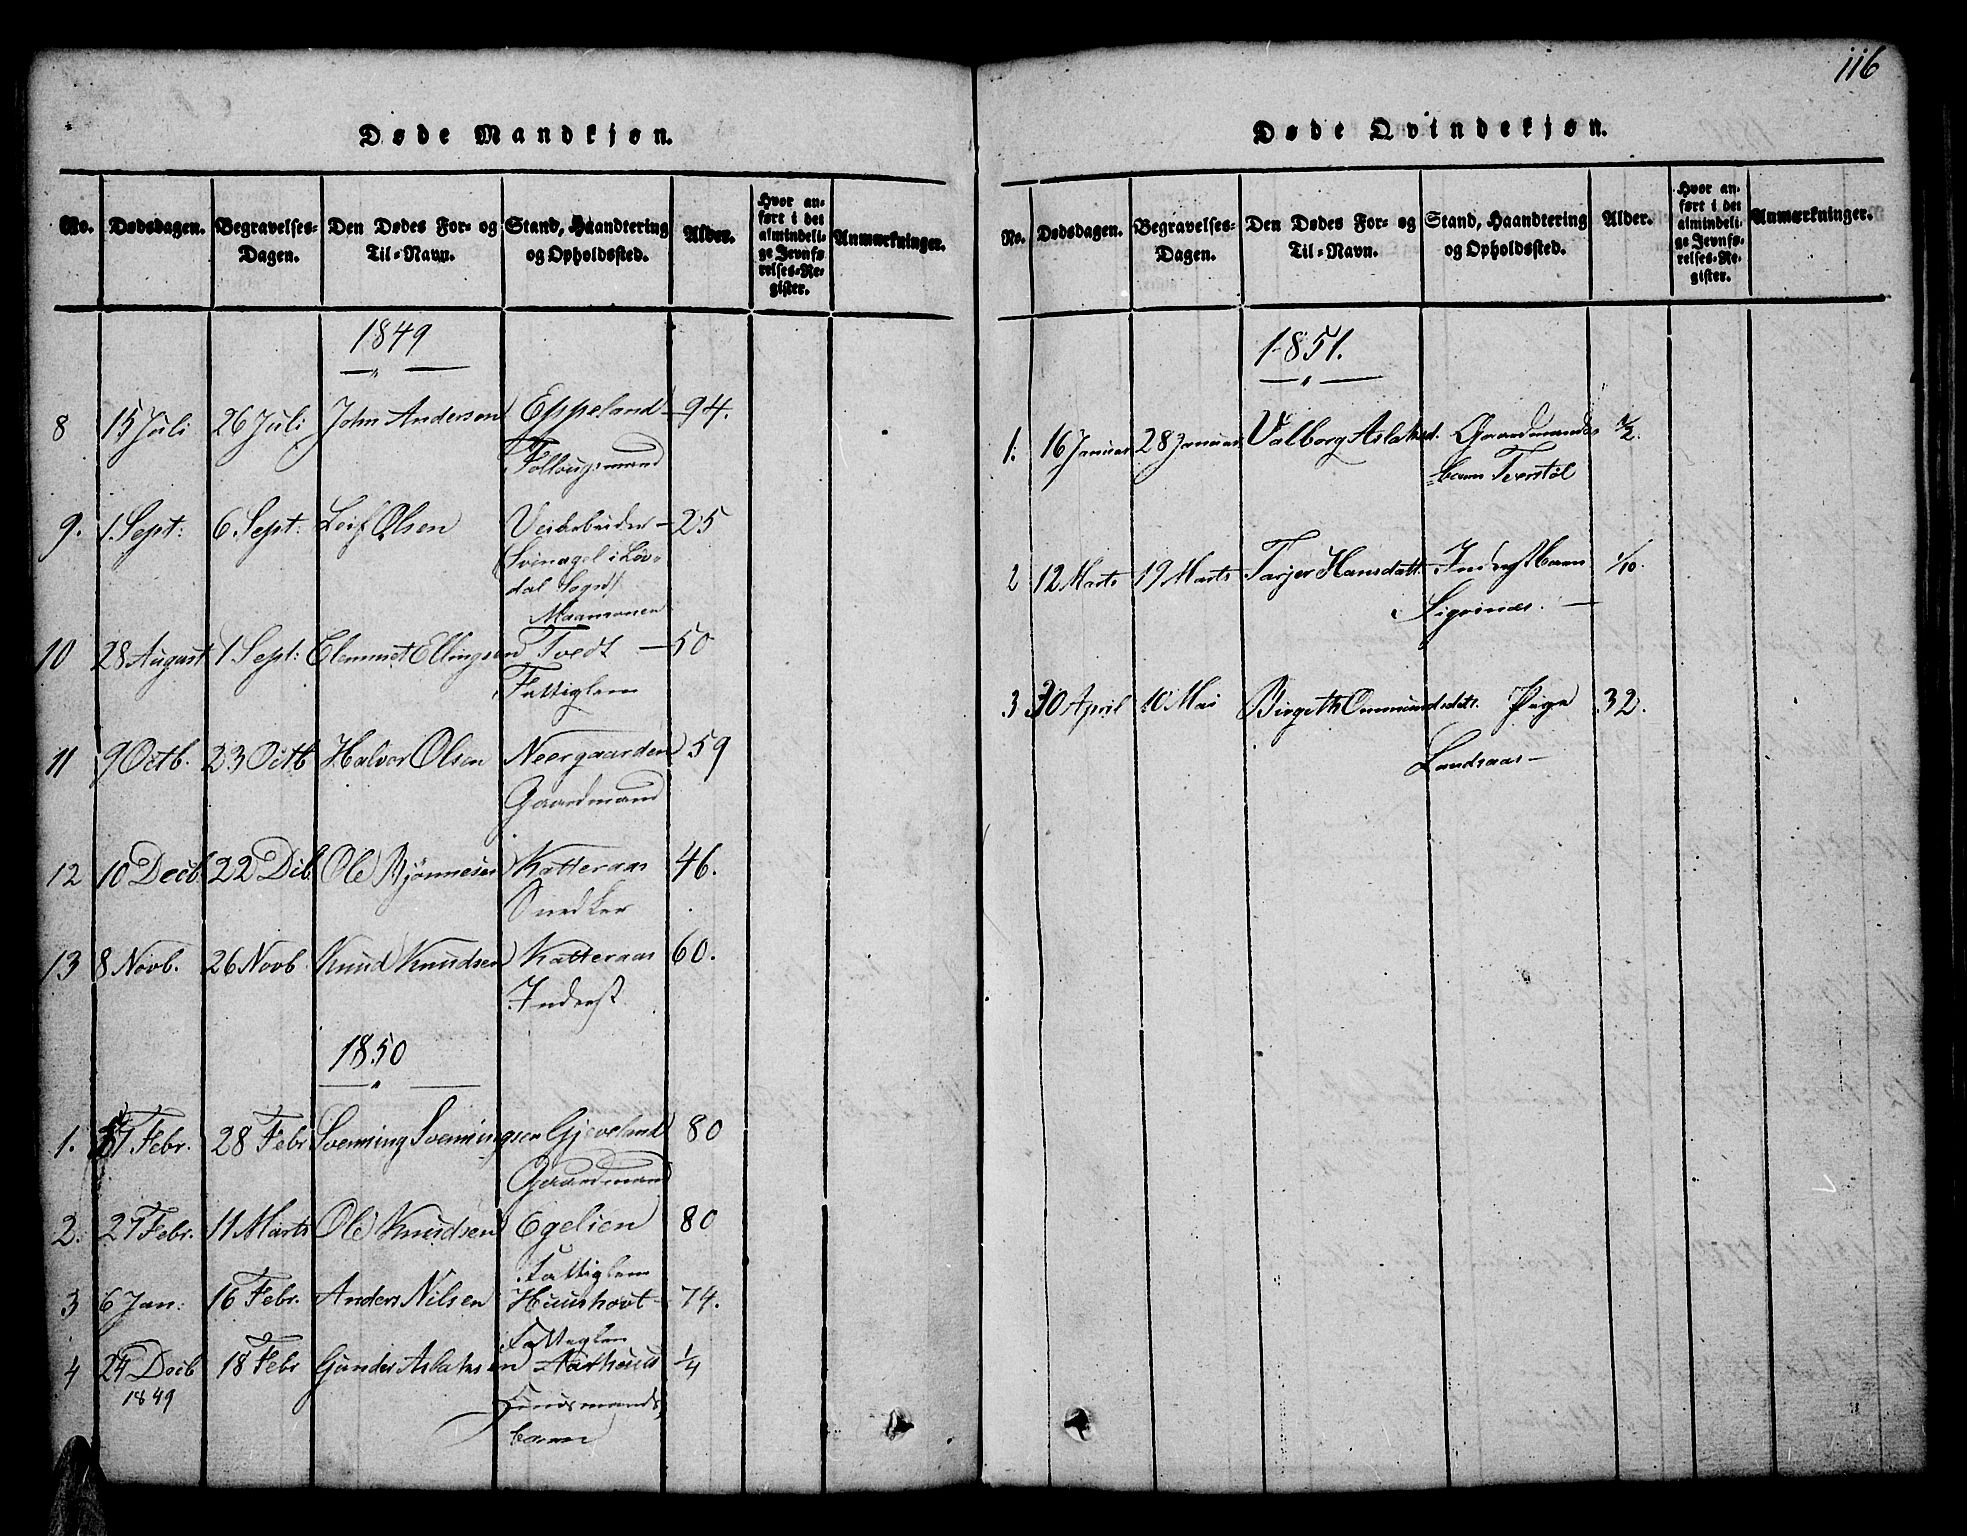 116
Døde Mandkjøn.
No. Dødsdagen. Begravelses-Dagen. Den Dødes For- og Til-Navn. Stand, Haandtering og Opholdssted. Alder. Hvor anført i det almindelige Jevnførelses-Register. Anmærkninger.
1849
8 15 Juli 26 Juli John Andersen Eppeland 94.
9. 1 Sept: 6 Sept: Leif Olsen 25
dal Sogn)
10 28 August 1 Sept: Clemmet Ellingsen Tvedt 50
Fattiglem
11 9 Octb. 23 Octb Halvor Olsen Neergaarden 59
Gaardmand
12 10 Decb. 22 Dcb. Ole Bjönnesen Katteraas 46.
Snedker
13 8 Novb. 26 Novb Knud Knudsen Katteraas 60.
Inderst
1850
1. Febr. 28 Febr Svenning Svenningsen Gjeveland 80
Gaardmand
2. 27 Febr. 11 Marts Ole Knudsen Egelien 80
Fattiglem
3 6 Jan: 16 Febr. Anders Nilsen Huushovt 74.
Fattiglem
4 24 Decb 18 Febr Gunder Aslaksen Aarhuus 1/4
1849
Huusmands
barn
Døde Qvindekjøn.
No. Dødsdagen. Begravelses-Dagen. Den Dødes For- og Til-Navn. Stand, Haandtering og Opholdssted. Alder. Hvor anført i det almindelige Jevnførelses-Register. Anmærkninger.
1851.
1. 16 Januar 28 Januar Valborg Aslaksd. Gaardmands
barn
2 12 Marts 19 Marts Tarjer Hansdatt. Inderst Barn 1/10.
3 30 April 10 Mai Birgith Ommundsdatt. Pige 32.
Landsaas